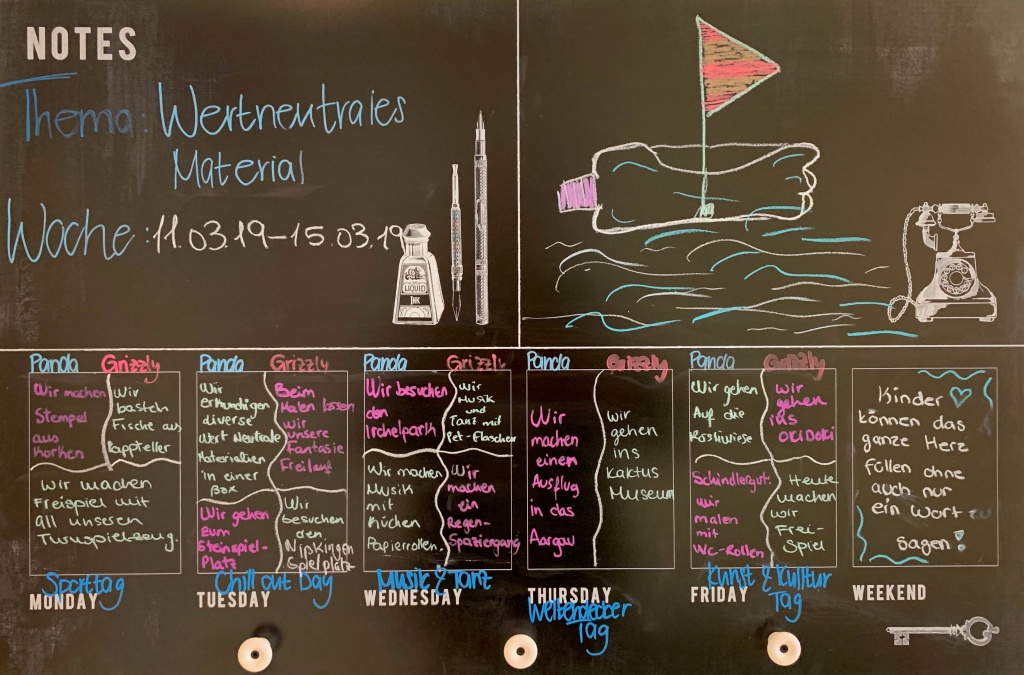 NOTES
Thema: Wertneutrales
Material
Woche: 11.03.19-15.03.19
LIQUID
INK
Panda Grizzly
Wir machen
Stempel
aus
Korken
Wir
basteln
Fische aus
Pappteller
Wir machen
Freispiel mit
all unseren
Turnspielzeug.
Sporttag
MONDAY
Panda Grizzly
Wir
erkundigen
diverse
Wert Neutrale
Materialien
in einer
Box
Beim
Malen lassen
wir
unsere
Fantasie
Freilauf
Wir gehen
zum
Steinspiel-
Platz
Wir
besuchen
den
Nipkingen
Spielplatz
Chill out Day
TUESDAY
Panda Grizzly
Wir besuchen
den
Irchelpark
Wir
Musik
und
Tanz mit
Pet-Flaschen
Wir machen
Musik
mit
Küchen
Papierrollen.
Wir
machen
ein
Regen-
Spaziergang
Musik & Tanz
WEDNESDAY
Panda Grizzly
Wir
machen
einen
Ausflug
in das
Aargau
Wir
gehen
ins
Kaktus
Museum
THURSDAY
Weltendecker
Tag
Panda Grizzly
Wir gehen
Auf die
Rösliwiese
Wir
gehen
ins
OKIDOKI
Schindlergut.
Wir
malen
mit
WC-Rollen
Heute
machen
wir
Frei-
Spiel
Kunst & Kultur
Tag
FRIDAY
Kinder
können das
ganze Herz
füllen ohne
auch nur
ein Wort zu
sagen!
WEEKEND